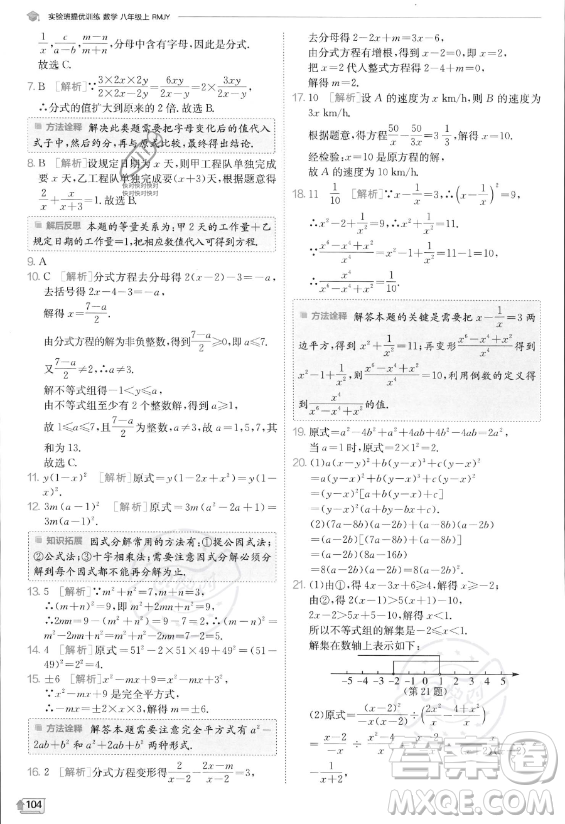 实验班提优训练 数学 八年级上 RMJY
1/x, a/(a-b), (x-y)/m, 分母中含有字母,因此是分式.
故选 C.
7. B [解析]∵(3×2x×2y)/(2x-2y)=6xy/(x-y)=2×3xy/(x-y),
∴分式的值扩大到原来的 2 倍.故选 B.
方法诠释 解决此类题需要把字母变化后的值代入
式子中,然后约分,再与原式比较,最终得出结论.
8. B [解析]设规定日期为 x 天,则甲工程队单独完成
要 x 天,乙工程队单独完成需要(x+3)天,根据题意,得
2/x+x/(x+3)=1.故选 B.
解后反思 本题的等量关系为:甲 2 天的工作量+乙
规定日期的工作量=1,把相应数值代入可得到.
9. A
10. C [解析]分式方程去分母得 2(x-2)-3=-a,
去括号得 2x-4-3=-a,
解得 x=(7-a)/2.
由分式方程的解为非负整数,得到(7-a)/2≥0,即 a≤7.
又(7-a)/2≠2,∴a≠3.
解不等式组得-1<y≤a.
由不等式组至少有 2 个整数解,得到 a≥1,
故 1≤a≤7,且(7-a)/2为整数,a≠3,故 a=1,5,7,其
和为 13.
故选 C.
11. y(1-x)² [解析]原式=y(1-2x+x²)=y(1-x)².
12. 3m(a-1)² [解析]原式=3m(a²-2a+1)=
3m(a-1)².
知识拓展 因式分解常用的方法有:①提公因式法;
②公式法;③十字相乘法;需要注意因式分解必须分
解到每个因式都不能再分解为止.
13. 5 [解析]∵m²+n²=7,m+n=3,
∴(m+n)²=9,即 m²+2mn+n²=9,
∴2mn=9-(m²+n²)=9-7=2,∴(m-n)²=
m²-2mn+n²=7-2=5.
14. 4 [解析]原式=51²-2×51×49+49²=(51-
49)²=2²=4.
15. ±6 [解析]∵x²-mx+9 是完全平方式,
∴x²-mx+9=(x±3)²=x²±6x+9,∴m=±6.
方法诠释 解答本题需要注意完全平方式有 a²-
2ab+b² 和 a²+2ab+b² 两种形式.
16. 2 [解析]分式方程变形得2/(x-2)-(2x-m)/(x-2)=3,
把 x=2 代入整式方程得 2-4+m=0,
解得 m=2.
17. 10 [解析]设 A 的速度为 x km/h,则 B 的速度为
3x km/h.
根据题意,得方程50/x-50/3x=20/6.
解得 x=10.
经检验:x=10 是原方程的根.
故 A 的速度为 10 km/h.
18. 11 1/10 [解析]∵x-1/x=3,∴(x-1/x)²=9,
∴x²-2+1/x²=9,∴x²+1/x²=11,
∴(x⁶-x⁴+x²)/x⁴=x²-1+1/x²=11-1=10,
∴x⁴/(x⁶-x⁴+x²)=1/10.
方法诠释 解答本题的关键是需要把 x-1/x=3 两
边平方,得到 x²+1/x²=11;再变形(x⁶-x⁴+x²)/x⁴=
x²-1+1/x²,求出它的值,最后利用倒数的定义得
到x⁴/(x⁶-x⁴+x²)的值.
19. 原式=a²-4b²+a²+4ab+4b²-4ab=2a²,
当 a=1 时,原式=2×1²=2.
20. (1)a(x-y)²+4(x-y)³
=a(y-x)²-4(y-x)³
=(y-x)²[a-4(y-x)]
=(y-x)²(a-4y+4x).
(2)(7a-8b)(a-2b)-(a-8b)(2b-a)
=(7a-8b)(a-2b)+(a-8b)(a-2b)
=(a-2b)(8a-16b)
=8(a-2b)².
21. (1)由①,得 4x+6≥x,
3x≥-6,解得 x≥-2.
由②,得 2(x-1)>5(x-1),
2x-2>5x-5,解得 x<1.
所以不等式组的解集是-2≤x<1.
解集在数轴上表示如下:
-5 -4 -3 -2 -1 0 1 2 3 4 5
(第 21 题)
104